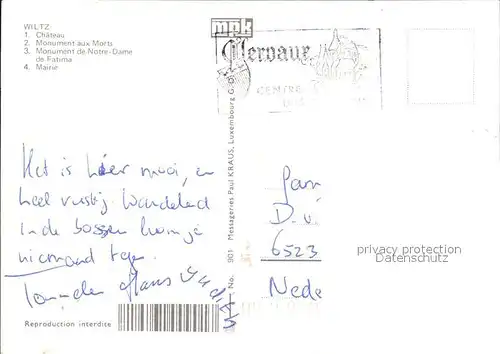 WILTZ
1. Château
2. Monument aux Morts
3. Monument de Notre-Dame
de Fatima
4. Mairie
mpk
Clervaux
CENTRE
No. 301 Messageries Paul KRAUS, Luxembourg G.
Het is hier mooi, en
heel rustig. Wandelend
in de bossen kom je
niemand tegen.
Hans
Fam
D. v.
6523
Nede
privacy protection
Datenschutz
Reproduction interdite